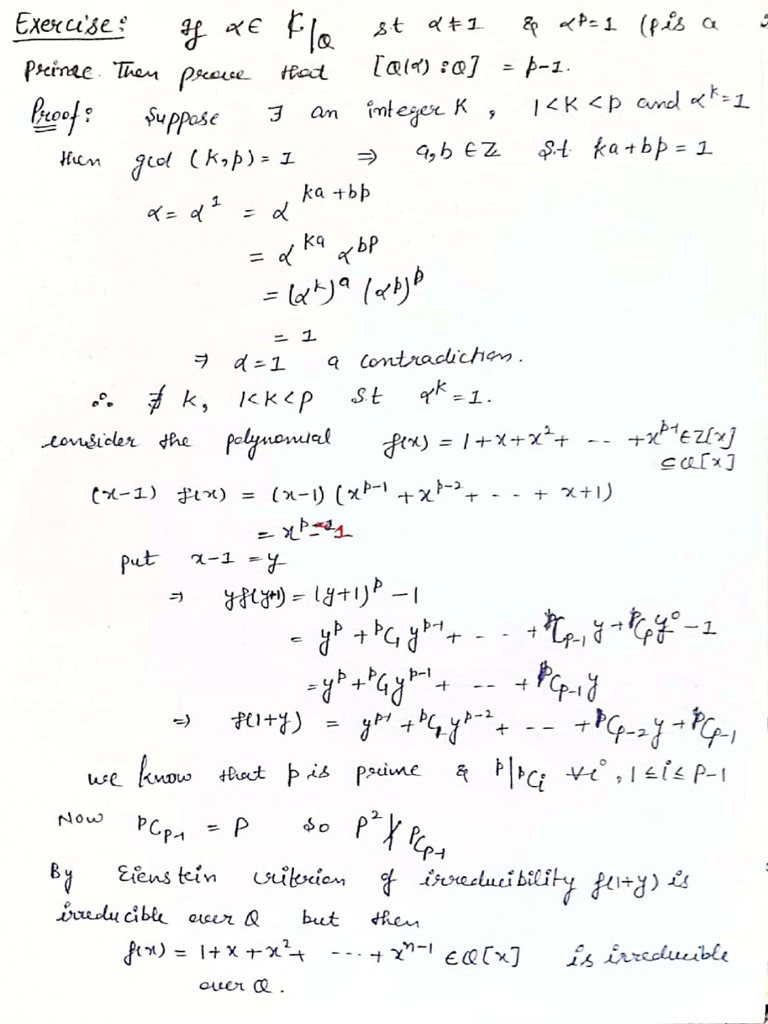 Exercise: If α ∈ K/Q s.t α ≠ 1 & α^p = 1 (p is a
prime. Then prove that [Q(α) : Q] = p-1.
Proof: Suppose ∃ an integer K, 1<K<p and α^k = 1
then gcd (k, p) = 1 ⇒ a, b ∈ Z s.t ka + bp = 1
α = α^1 = α^{ka + bp}
= α^{ka} α^{bp}
= (α^k)^a (α^p)^b
= 1
⇒ α = 1 a contradiction.
∴ ∄ k, 1<K<p s.t α^k = 1.
consider the polynomial f(x) = 1 + x + x^2 + -- + x^{p-1} ∈ Z[x]
⊆ Q[x]
(x-1) f(x) = (x-1) (x^{p-1} + x^{p-2} + - - + x+1)
= x^p - 1
put x-1 = y
⇒ yf(y+1) = (y+1)^p - 1
= y^p + pC_1 y^{p-1} + - - + pC_{p-1} y + pC_p y^0 - 1
= y^p + pC_1 y^{p-1} + -- + pC_{p-1} y
⇒ f(1+y) = y^{p-1} + pC_1 y^{p-2} + -- + pC_{p-2} y + pC_{p-1}
we know that p is prime & p | pC_i ∀ i, 1 ≤ i ≤ p-1
Now pC_{p-1} = p so p^2 ∤ pC_{p-1}
By Eienstein criterion of irreducibility f(1+y) is
irreducible over Q but then
f(x) = 1 + x + x^2 + --- + x^{n-1} ∈ Q[x] is irreducible
over Q.